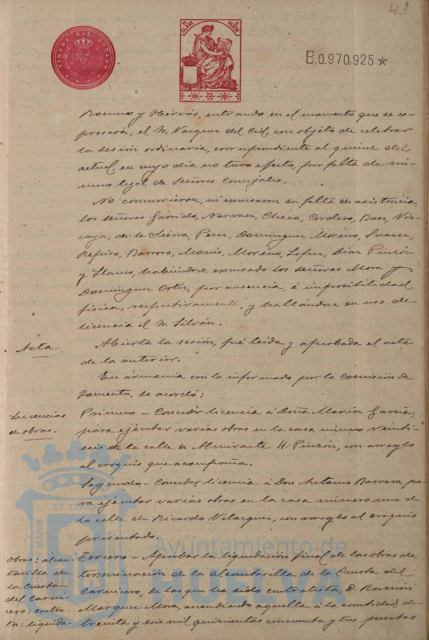 43
B.0.970.925*
Romero y Hervás, entrando en el momento que se ex-
presará, el Sr. Vazquez del Cid, con objeto de celebrar
la sesión ordinaria, correspondiente al quince del
actual, en cuyo dia no tuvo efecto, por falta de nú-
mero legal de Señores Concejales.
No concurrieron, ni excusaron su falta de asistencia,
los señores Garrido, Narvaez, Checa, Cordero, Baez, Viz-
caya, de la Sierra, Perez, Dominguez Moreno, Suarez,
Repiso, Barroso, Moreno, Lopez, Diaz Pinzón
y Llanes, habiéndose excusado los señores Mora y
Dominguez Ortiz, por ausencia, é imposibilidad
fisica, respectivamente, y hallándose en uso de
licencia el Sr. Silván.
Acta.
Abierta la sesión, fué leida y aprobada el acta
de la anterior.
En armonia con lo informado, por la Comisión de
Fomento, se acordó:
Licencias
de obras.
Primero – Conceder licencia á Doña Maria Garcia,
para ejecutar varias obras en la casa número veinti-
seis de la calle de Almirante H. Pinzón, con arreglo
al croquis que acompaña.
Segundo – Conceder licencia á Don Antonio Barrera, pa-
ra ejecutar varias obras en la casa número uno de
la calle de Ricardo Velazquez, con arreglo al croquis
presentado.
Obras: alcan-
tarilla de
la Cuesta
del Carni-
cero: contra-
ta: liquida
Tercero – Aprobar la liquidación final de las obras de
terminación de la alcantarilla de la Cuesta del
Carnicero, de las que ha sido contratista, D. Ramón
Marquez Mora, ascendiendo aquella á la cantidad de
treinta y seis mil quinientas cincuenta y tres pesetas
Ayuntamiento de
HUELVA